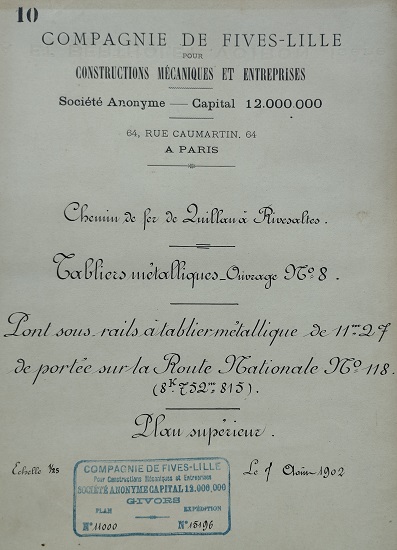 10
COMPAGNIE DE FIVES-LILLE
POUR
CONSTRUCTIONS MÉCANIQUES ET ENTREPRISES
Société Anonyme — Capital 12.000.000
64, RUE CAUMARTIN, 64
A PARIS
Chemin de fer de Quillan à Rivesaltes.
Tabliers métalliques - Ouvrage Nº 8.
Pont sous rails à tablier métallique de 11m27
de portée sur la Route Nationale Nº 118.
(8K752m815).
Plan supérieur.
Echelle 1/25
Le 7 Août 1902
COMPAGNIE DE FIVES-LILLE
Pour Constructions Mécaniques et Entreprises
SOCIÉTÉ ANONYME CAPITAL 12.000.000
GIVORS
PLAN EXPÉDITION
Nº 11000 Nº 15196